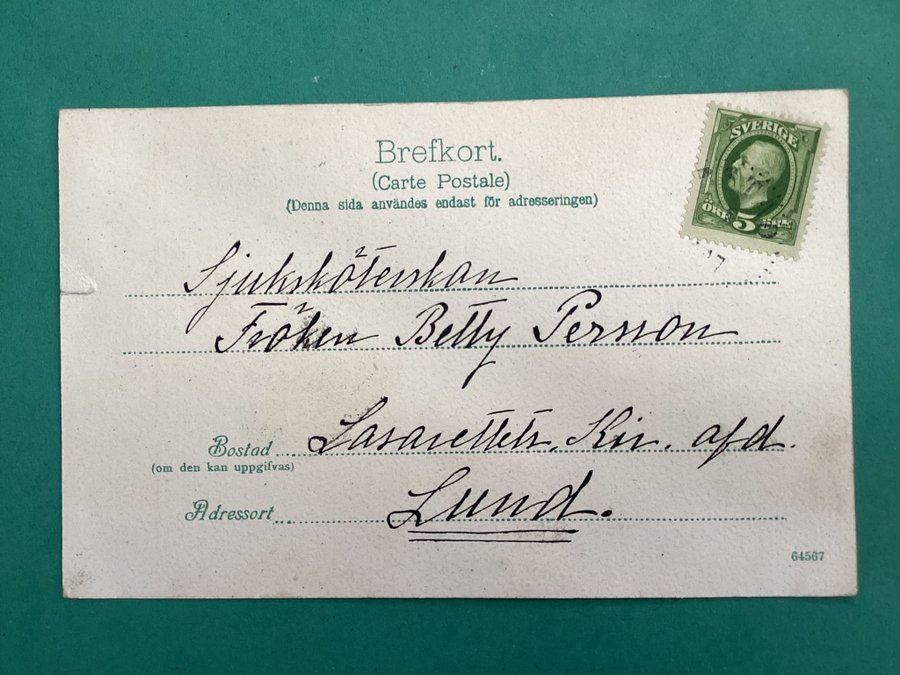 Brefkort.
(Carte Postale)
(Denna sida användes endast för adresseringen)
SVERIGE
ÖRE 5 ÖRE
17
Sjuksköterskan
Fröken Betty Persson
Bostad Lasarettets, Kir. afd.
(om den kan uppgifvas)
Adressort Lund.
64567